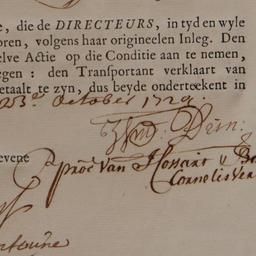 , die de DIRECTEURS, in tyd en wyle
oren, volgens haar origineelen Inleg. Den
elve Actie op die Conditie aan te nemen,
egen: den Transportant verklaart van
etaalt te zyn, dus beyde ondertekent in
23e October 1729.
evene
proc van Hossant
Cornelis ver